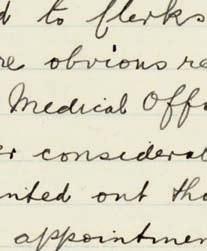 d to flerks
re obvious re
Medical Offi
er considerat
nted out tha
appointmen